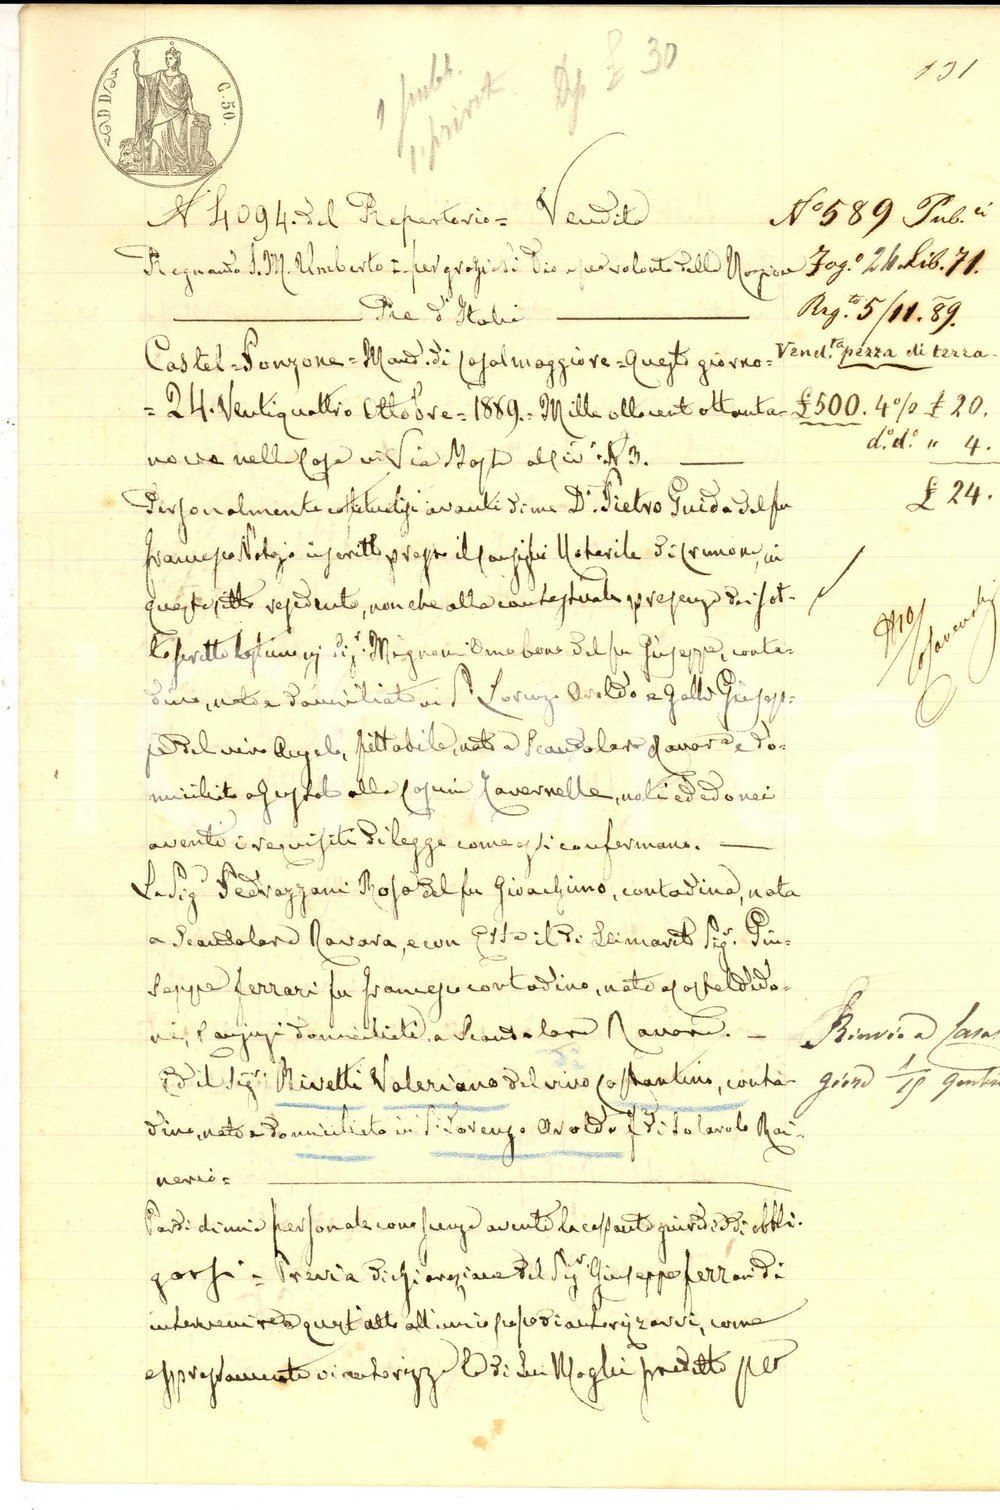 131
C. 50.
1 pubb.
1. privat.
Dp £ 30
N 4094. del Repertorio = Vendita
Regnando S. M. Umberto I per grazia di Dio e per volontà della Nazione
Re d'Italia
Castel = Ponzone = Mand. di Casalmaggiore = Questo giorno =
= 24. Ventiquattro Ottobre = 1889. = Mille ottocent ottanta-
nove nella Casa in Via Posta al civ. N 3.
Personalmente costituitisi avanti di me Dr. Pietro Guida del fu
Francesco Notajo iscritto presso il Consiglio Notarile di Cremona, in
questa residente, non che alla contestuale presenza dei sot-
toscritti testimonj Sigr. Mignoni Omobono del fu Giuseppe, conta-
dino, nato e domiciliato in S. Lorenzo Aroldo e Galli Giusep-
pe del vivo Angelo, fittabile, nato a Scandolara Ravara e do-
miciliato a alla Cascina Tavernelle, noti ed idonei
aventi i requisiti di legge come essi confermano.
La Sig.a Pedrazzani Rosa del fu Gioachimo, contadina, nata
a Scandolara Ravara, e con Essa il di Lei marito Sigr. Giu-
seppe Ferrari fu Francesco contadino, nato a Casteldido-
ne, Conjugi domiciliati a Scandolara Ravara.
Ed il Sigr. Rivetti Valeriano del vivo Costantino, conta-
dino, nato e domiciliato in S. Lorenzo Aroldo f. di Solarolo Rai-
nerio =
Parti di mia personale conoscenza aventi la capacità giuridica di obbli-
garsi = Previa dichiarazione del Sigr. Giuseppe Ferrari di
intervenire a quest'atto all'unico scopo di autorizzarvi, come
espressamente vi autorizza la di Lui Moglie predetta per
N.o 589 Pub.ci
Fog.o 24 Lib. 71.
Reg.to 5/11. 89.
Vend.ta pezza di terra
£ 500. 4% £ 20.
d.o d.o " 4.
£ 24.
Rinvio a Casal
giore 1/19